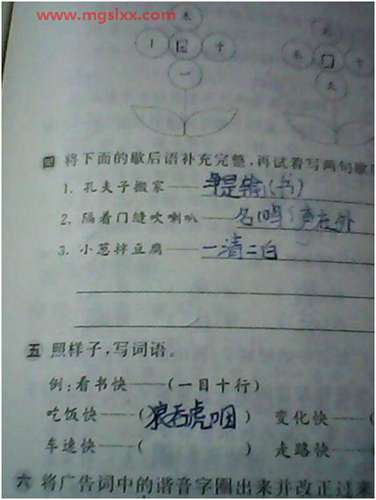 www.mgslxx.com
木
一
四 将下面的歇后语补充完整,再试着写两句歇
1. 孔夫子搬家——净是输(书)
2. 隔着门缝吹喇叭——名(鸣)声在外
3. 小葱拌豆腐——一清二白
五 照样子,写词语。
例:看书快——(一目十行)
吃饭快——(狼吞虎咽) 变化快——
车速快——( ) 走路快——
六 将广告词中的谐音字圈出来并改正过来